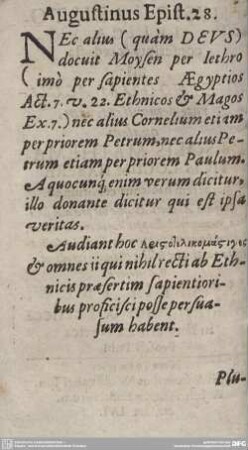 Augustinus Epist. 28.
NEc alius (quàm DEVS)
docuit Moysen per Iethro
(imò per sapientes Ægyptios
Act. 7. v. 22. Ethnicos & Magos
Ex. 7.) nec alius Cornelium etiam
per priorem Petrum, nec alius Pe-
trum etiam per priorem Paulum.
A quocunq; enim verum dicitur,
illo donante dicitur qui est ipsa
veritas.
Audiant hoc
& omnes ii qui nihil recti ab Eth-
nicis præsertim sapientiori-
bus proficisci posse persua-
sum habent.
Plu-